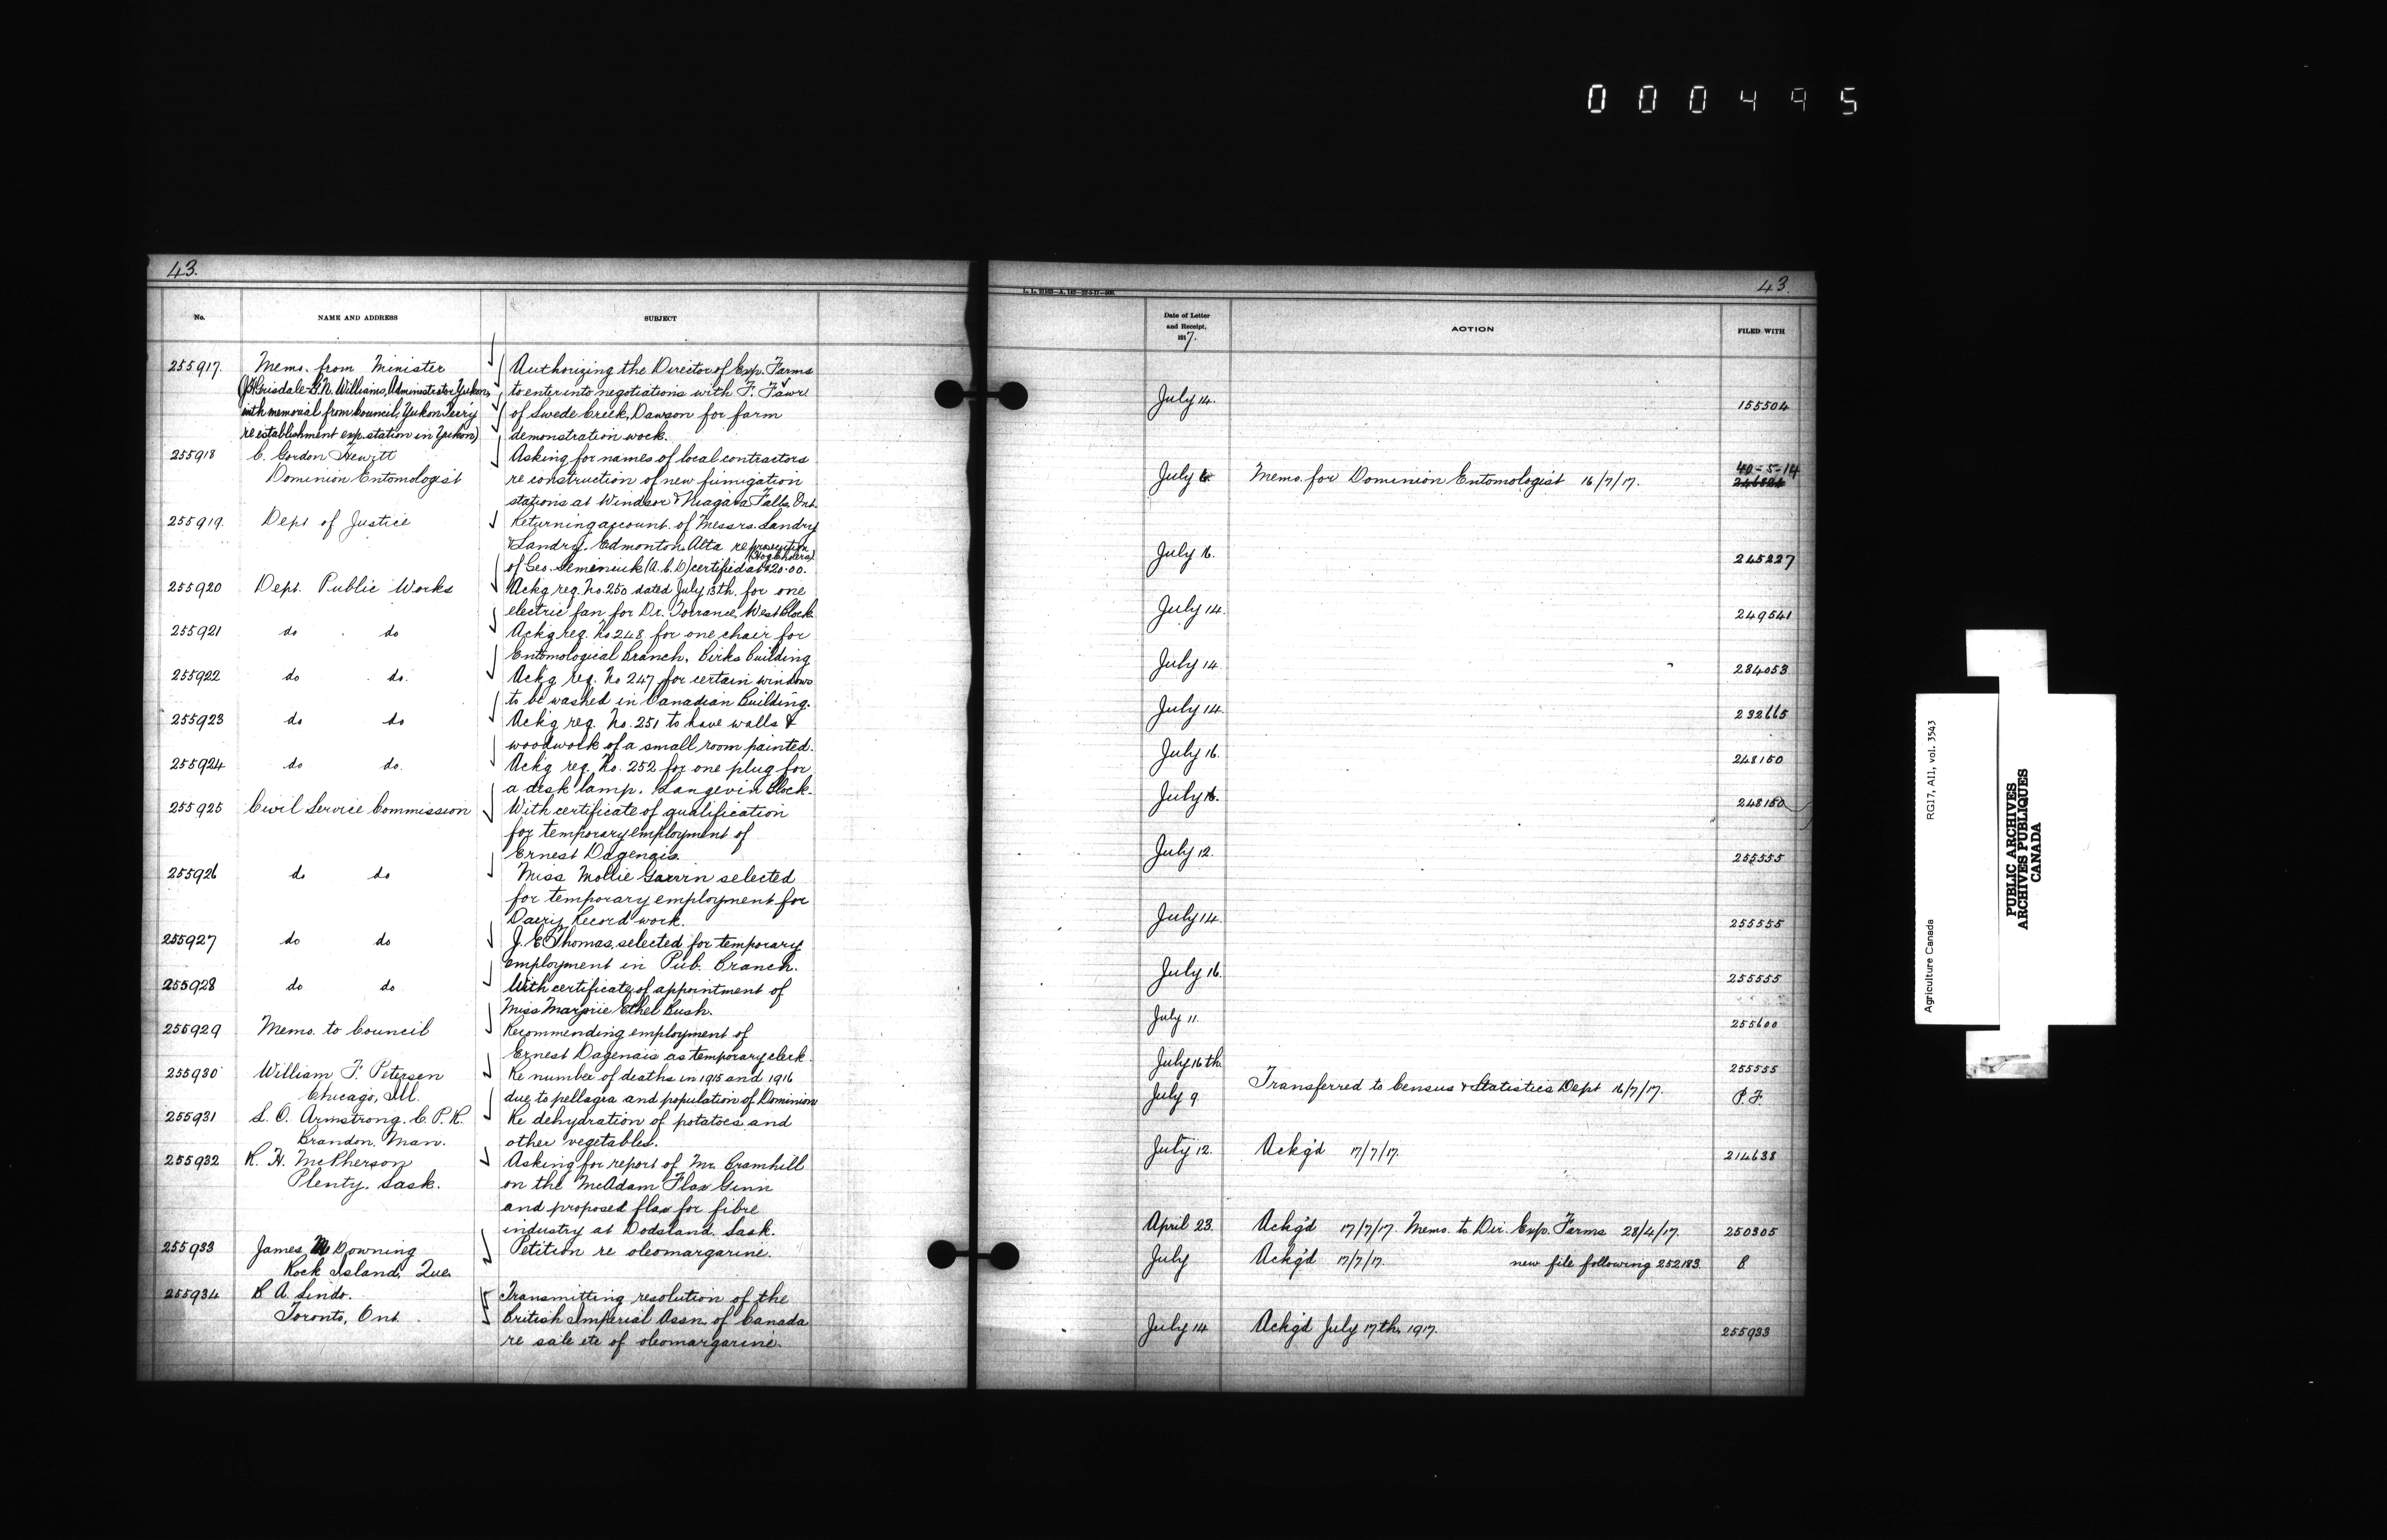 000495
43.
No.
NAME AND ADDRESS
SUBJECT
255917. Memo. from Minister
(J.H. Grisdale - G.N. Williams, Administrator Yukon,
with memorial from Council, Yukon Terr'y
re establishment exp. station in Yukon)
Authorizing the Director of Exp. Farms
to enter into negotiations with F. Fawr
of Swede Creek, Dawson for farm
demonstration work.
255918 C. Gordon Hewitt
Dominion Entomologist
Asking for names of local contractors
re construction of new fumigation
stations at Windsor & Niagara Falls, Ont.
255919. Dept of Justice
Returning account of Messrs. Landry
& Landry, Edmonton, Alta re prosecution
(Hog Cholera)
of Geo. Semeniuk (A.C.D) certified at $20.00.
255920 Dept. Public Works
Ackg req. No. 250 dated July 13th. for one
electric fan for Dr. Torrance, West Block.
255921 do do
Ackg req. No. 248 for one chair for
Entomological Branch, Birks Building
255922 do do.
Ackg req. No 247 for certain windows
to be washed in Canadian Building.
255923 do do
Ackg req. No. 251 to have walls &
woodwork of a small room painted.
255924 do do.
Ackg req. No. 252 for one plug for
a desk lamp. Langevin Block.
255925 Civil Service Commission
With certificate of qualification
for temporary employment of
Ernest Dagenais.
255926 do do
Miss Mollie selected
for temporary employment for
Dairy Record work.
255927 do do
J. E. Thomas, selected for temporary
employment in Pub. Branch.
255928 do do
With certificate of appointment of
Miss Marjorie Ethel Bush.
255929 Memo. to Council
Recommending employment of
Ernest Dagenais as temporary clerk.
255930 William F. Petersen
Chicago, Ill.
Re number of deaths in 1915 and 1916
due to pellagra and population of Dominion
255931 L. O. Armstrong. C. P. R.
Brandon, Man.
Re dehydration of potatoes and
other vegetables.
255932 R. H. McPherson
Plenty, Sask.
Asking for report of Mr. Bramhill
on the McAdam Flax Ginn
and proposed flax for fibre
industry at Dodsland, Sask.
255933 James Downing
Rock Island, Que.
Petition re oleomargarine.
255934 A. Lindo.
Toronto, Ont.
Transmitting resolution of the
British Imperial Assn. of Canada
re sale etc of oleomargarine.
43.
Date of Letter
and Receipt,
1917.
ACTION
FILED WITH
July 14. 155504
July 6. Memo. for Dominion Entomologist 16/7/17. 40-5-14
July 16. 245227
July 14. 249541
July 14. 284053
July 14. 232665
July 16. 248150
July 16. 248150
July 12. 255555
July 14. 255555
July 16. 255555
July 11. 255600
July 16th. 255555
July 9 Transferred to Census & Statistics Dept 16/7/17. P.F.
July 12. Ackg'd 17/7/17. 214638
April 23. Ackg'd 17/7/17. Memo. to Dir. Exp. Farms 28/4/17. 250305
July Ackg'd 17/7/17. new file following 252183. B.
July 14 Ackg'd July 17th, 1917. 255933
Agriculture Canada RG17, AI1, vol. 3543
PUBLIC ARCHIVES
ARCHIVES PUBLIQUES
CANADA